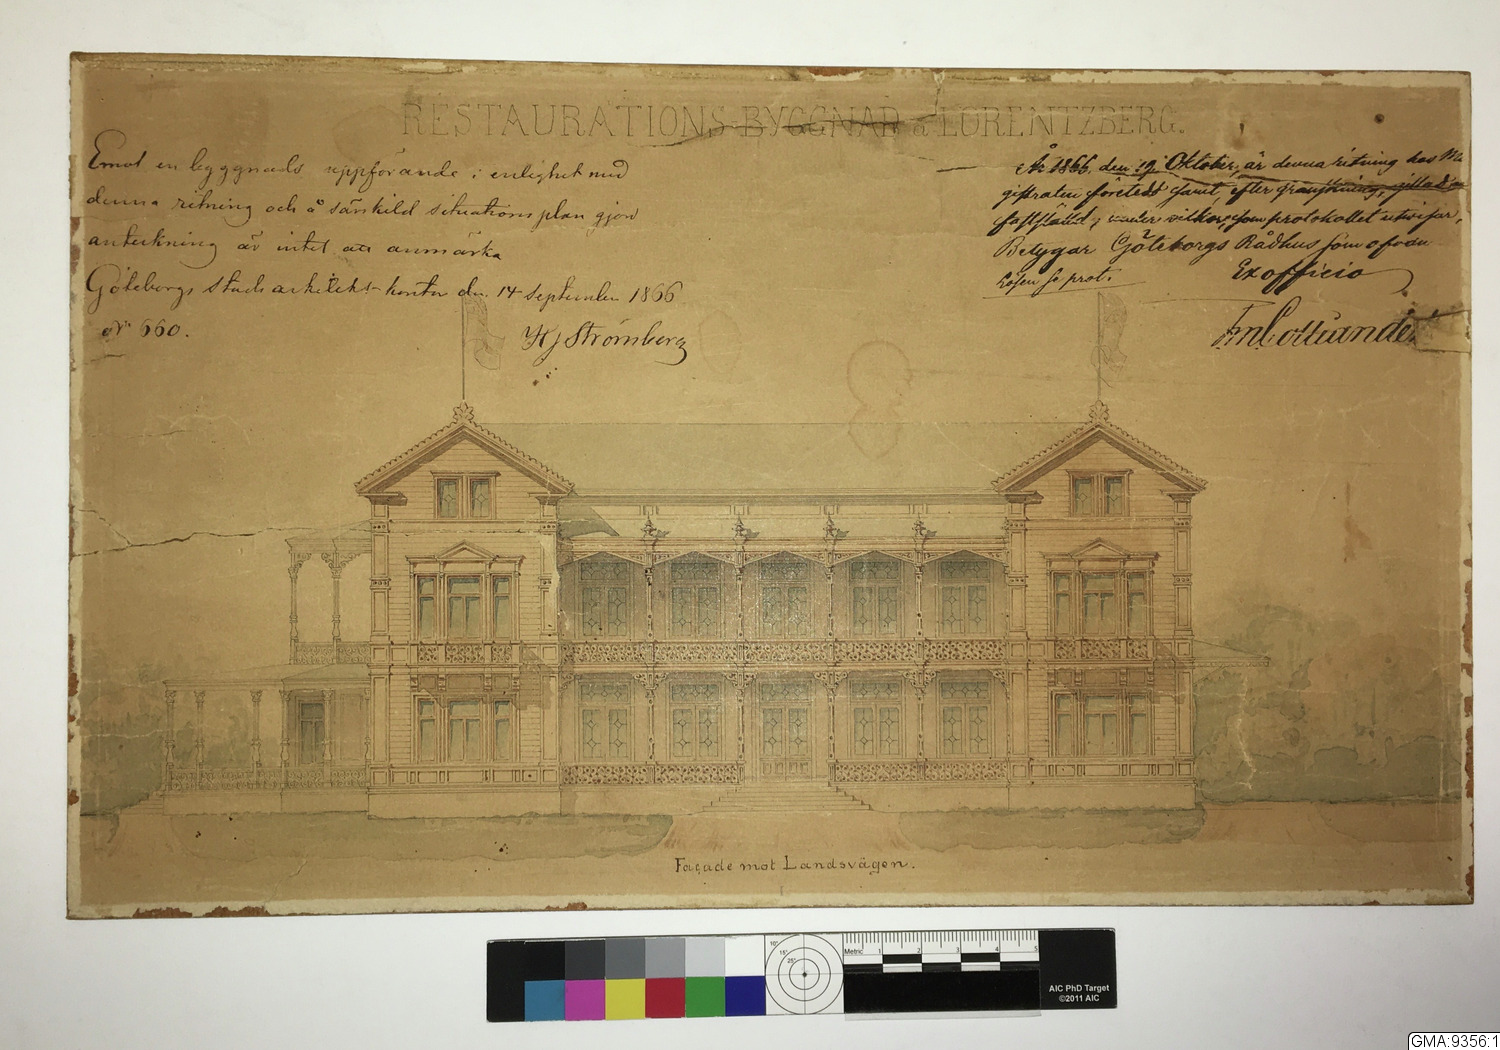 RESTAURATIONS-BYGGNAD å LORENTZBERG.
Emot en byggnads uppförande i enlighet med
denna ritning och å särskild situationsplan gjord
anteckning är intet att anmärka
Göteborgs stads arkitekt-kontor den 14 September 1866
No 660.
HjStrömberg
År 1866, den 19 Oktober, är denna ritning hos Ma
gistraten företedd samt, efter granskning, gillad och
fastställd, under vilkor, som protokollet utvisar,
Betygar Göteborgs Rådhus som ofvan
Lösen se prot.
Ex officio
Façade mot Landsvägen.
10°
15°
25°
Metric 1 2 3 4 5
AIC PhD Target
©2011 AIC
GMA:9356:1